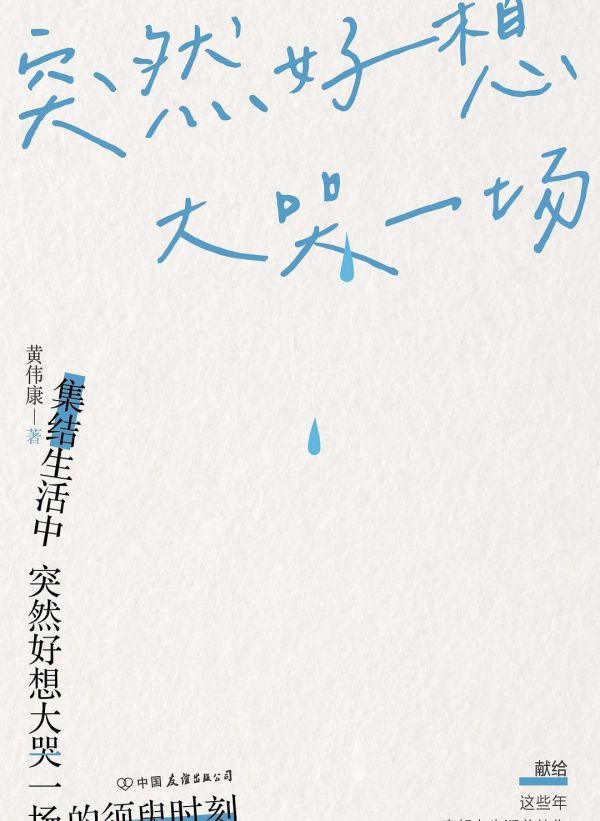 突然好想
大哭一场
黄伟康—著
集结生活中
突然好想大哭一场的须臾时刻
中国友谊出版公司
献给
这些年